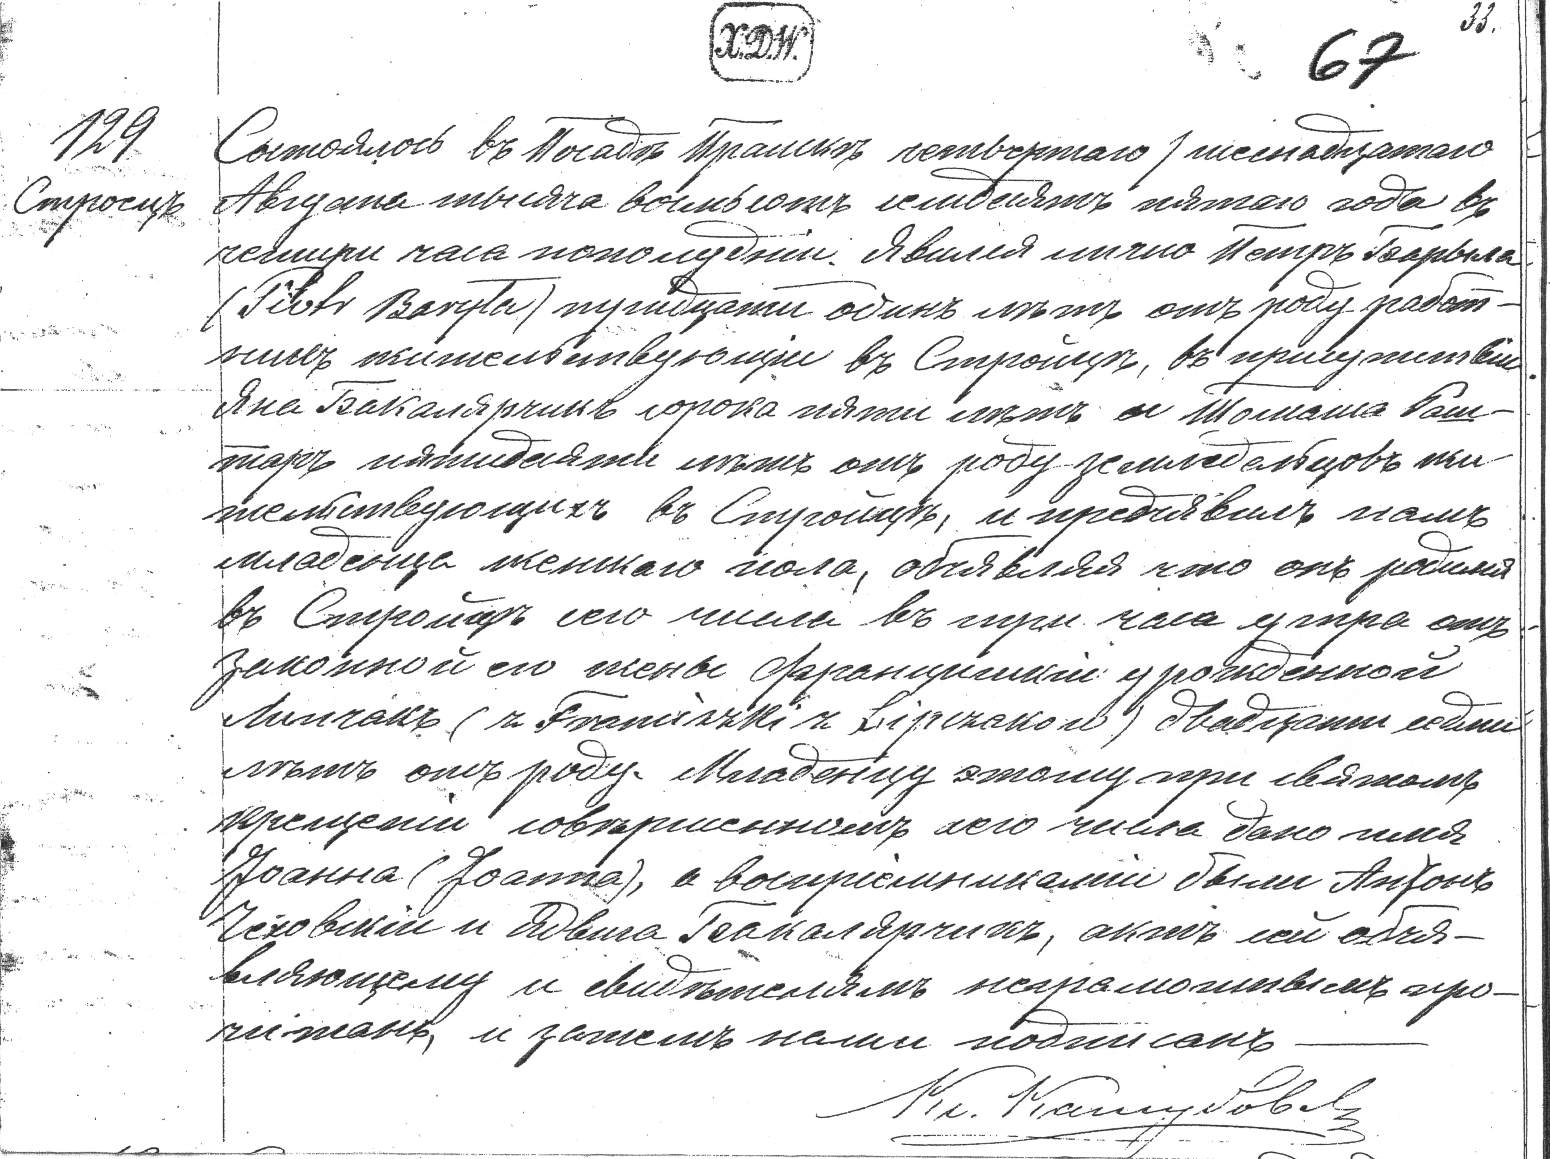 33.
Х.D.W.
67
129
Строецъ
Состоялось въ Посадѣ Прашкѣ четвертаго / шеснадцатаго
Августа тысяча восмьсотъ семдесятъ пятаго года въ
четыри часа пополудніи. Явился лично Петръ Барыла
(Piotr Baryła) тридцати одинъ лѣтъ отъ роду работ-
никъ жительствующіи въ Стройцѣ, въ присутствіи
Яна Бакалярчикъ сорока пяти лѣтъ и Томаша
таръ пятидесяти лѣтъ отъ роду земледельцовъ жи-
тельствующихъ въ Стройцѣ, и предъявилъ намъ
младенца женскаго пола, объявляя что онъ родился
въ Стройцѣ сего числа въ три часа утра отъ
законной его жены Францишкіи урожденной
Липчакъ (z Franciszki z Lipczakow) двадцати седми
лѣтъ отъ роду. Младенцу этому при святомъ
крещеніи совѣршенномъ сего числа дано имя
Іоанна (Joanna), а воспріемниками были Антонъ
Чеховскіи и Ядвига Бакалярчикъ, актъ сей объя-
вляющему и свидѣтелямъ неграмотнымъ про-
читанъ, и затемъ нами подписанъ
Кс.